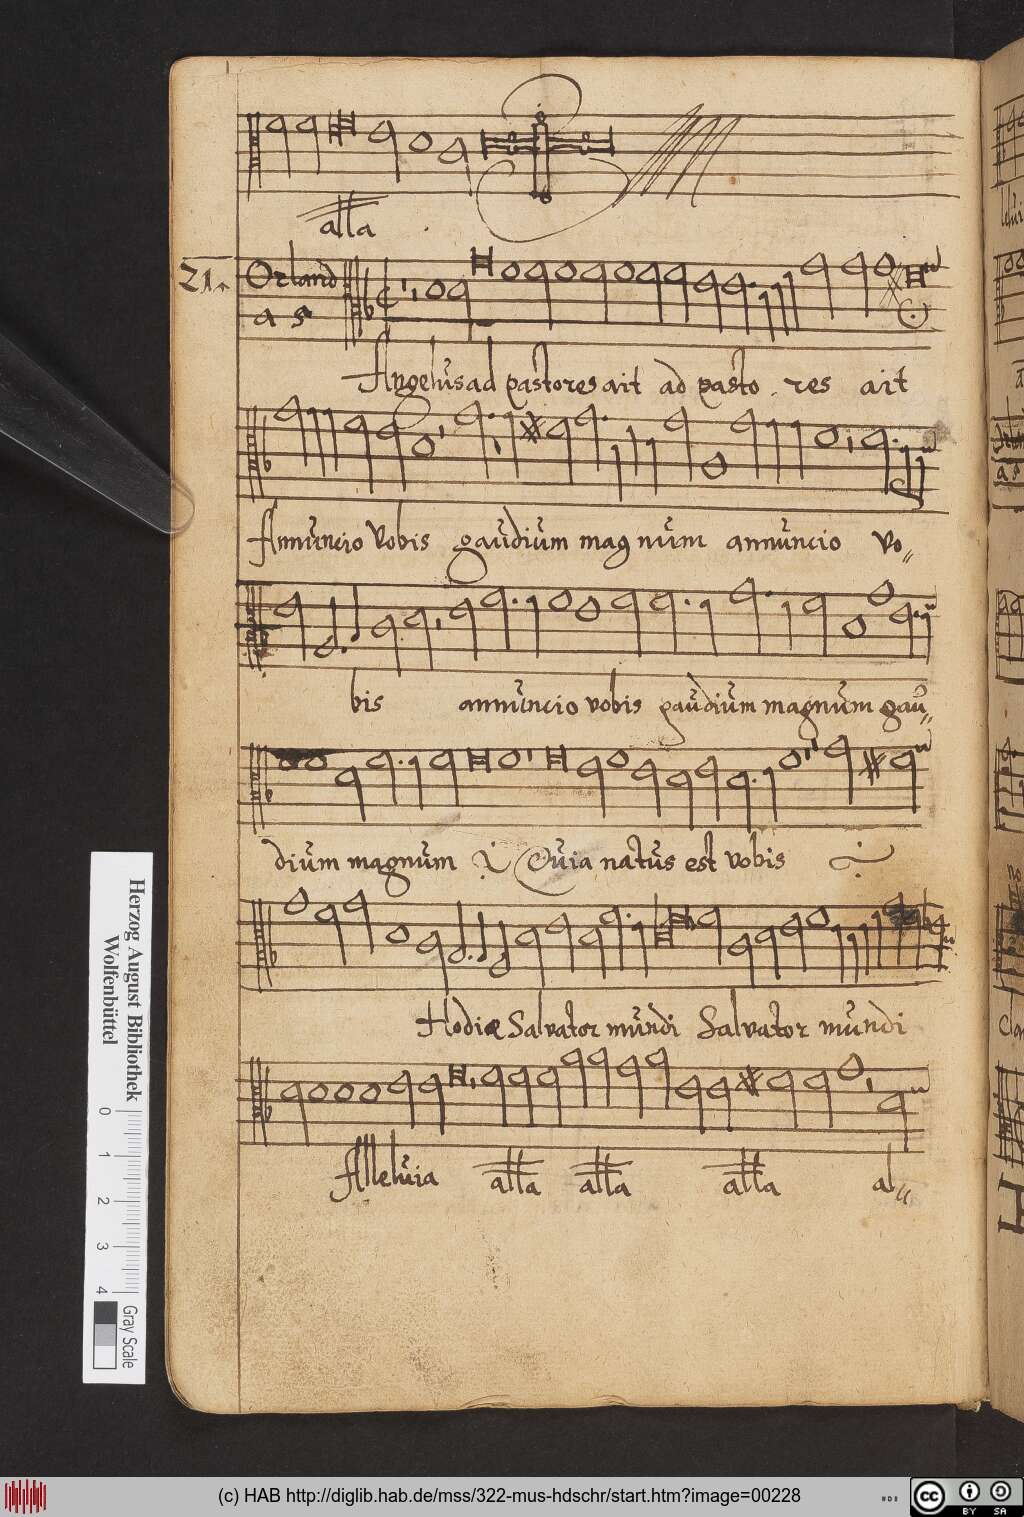 alla
21. Orland
a 5
Angelus ad pastores ait ad pasto res ait
Annuncio Vobis gaudium magnum annuncio vo
bis annuncio vobis gaudium magnum gau
dium magnum Quia natus est vobis
Hodie Salvator mundi Salvator mundi
Alleluia alla alla alla al
Herzog August Bibliothek
Wolfenbüttel
0 1 2 3 4
Gray Scale
(c) HAB http://diglib.hab.de/mss/322-mus-hdschr/start.htm?image=00228
cc BY SA